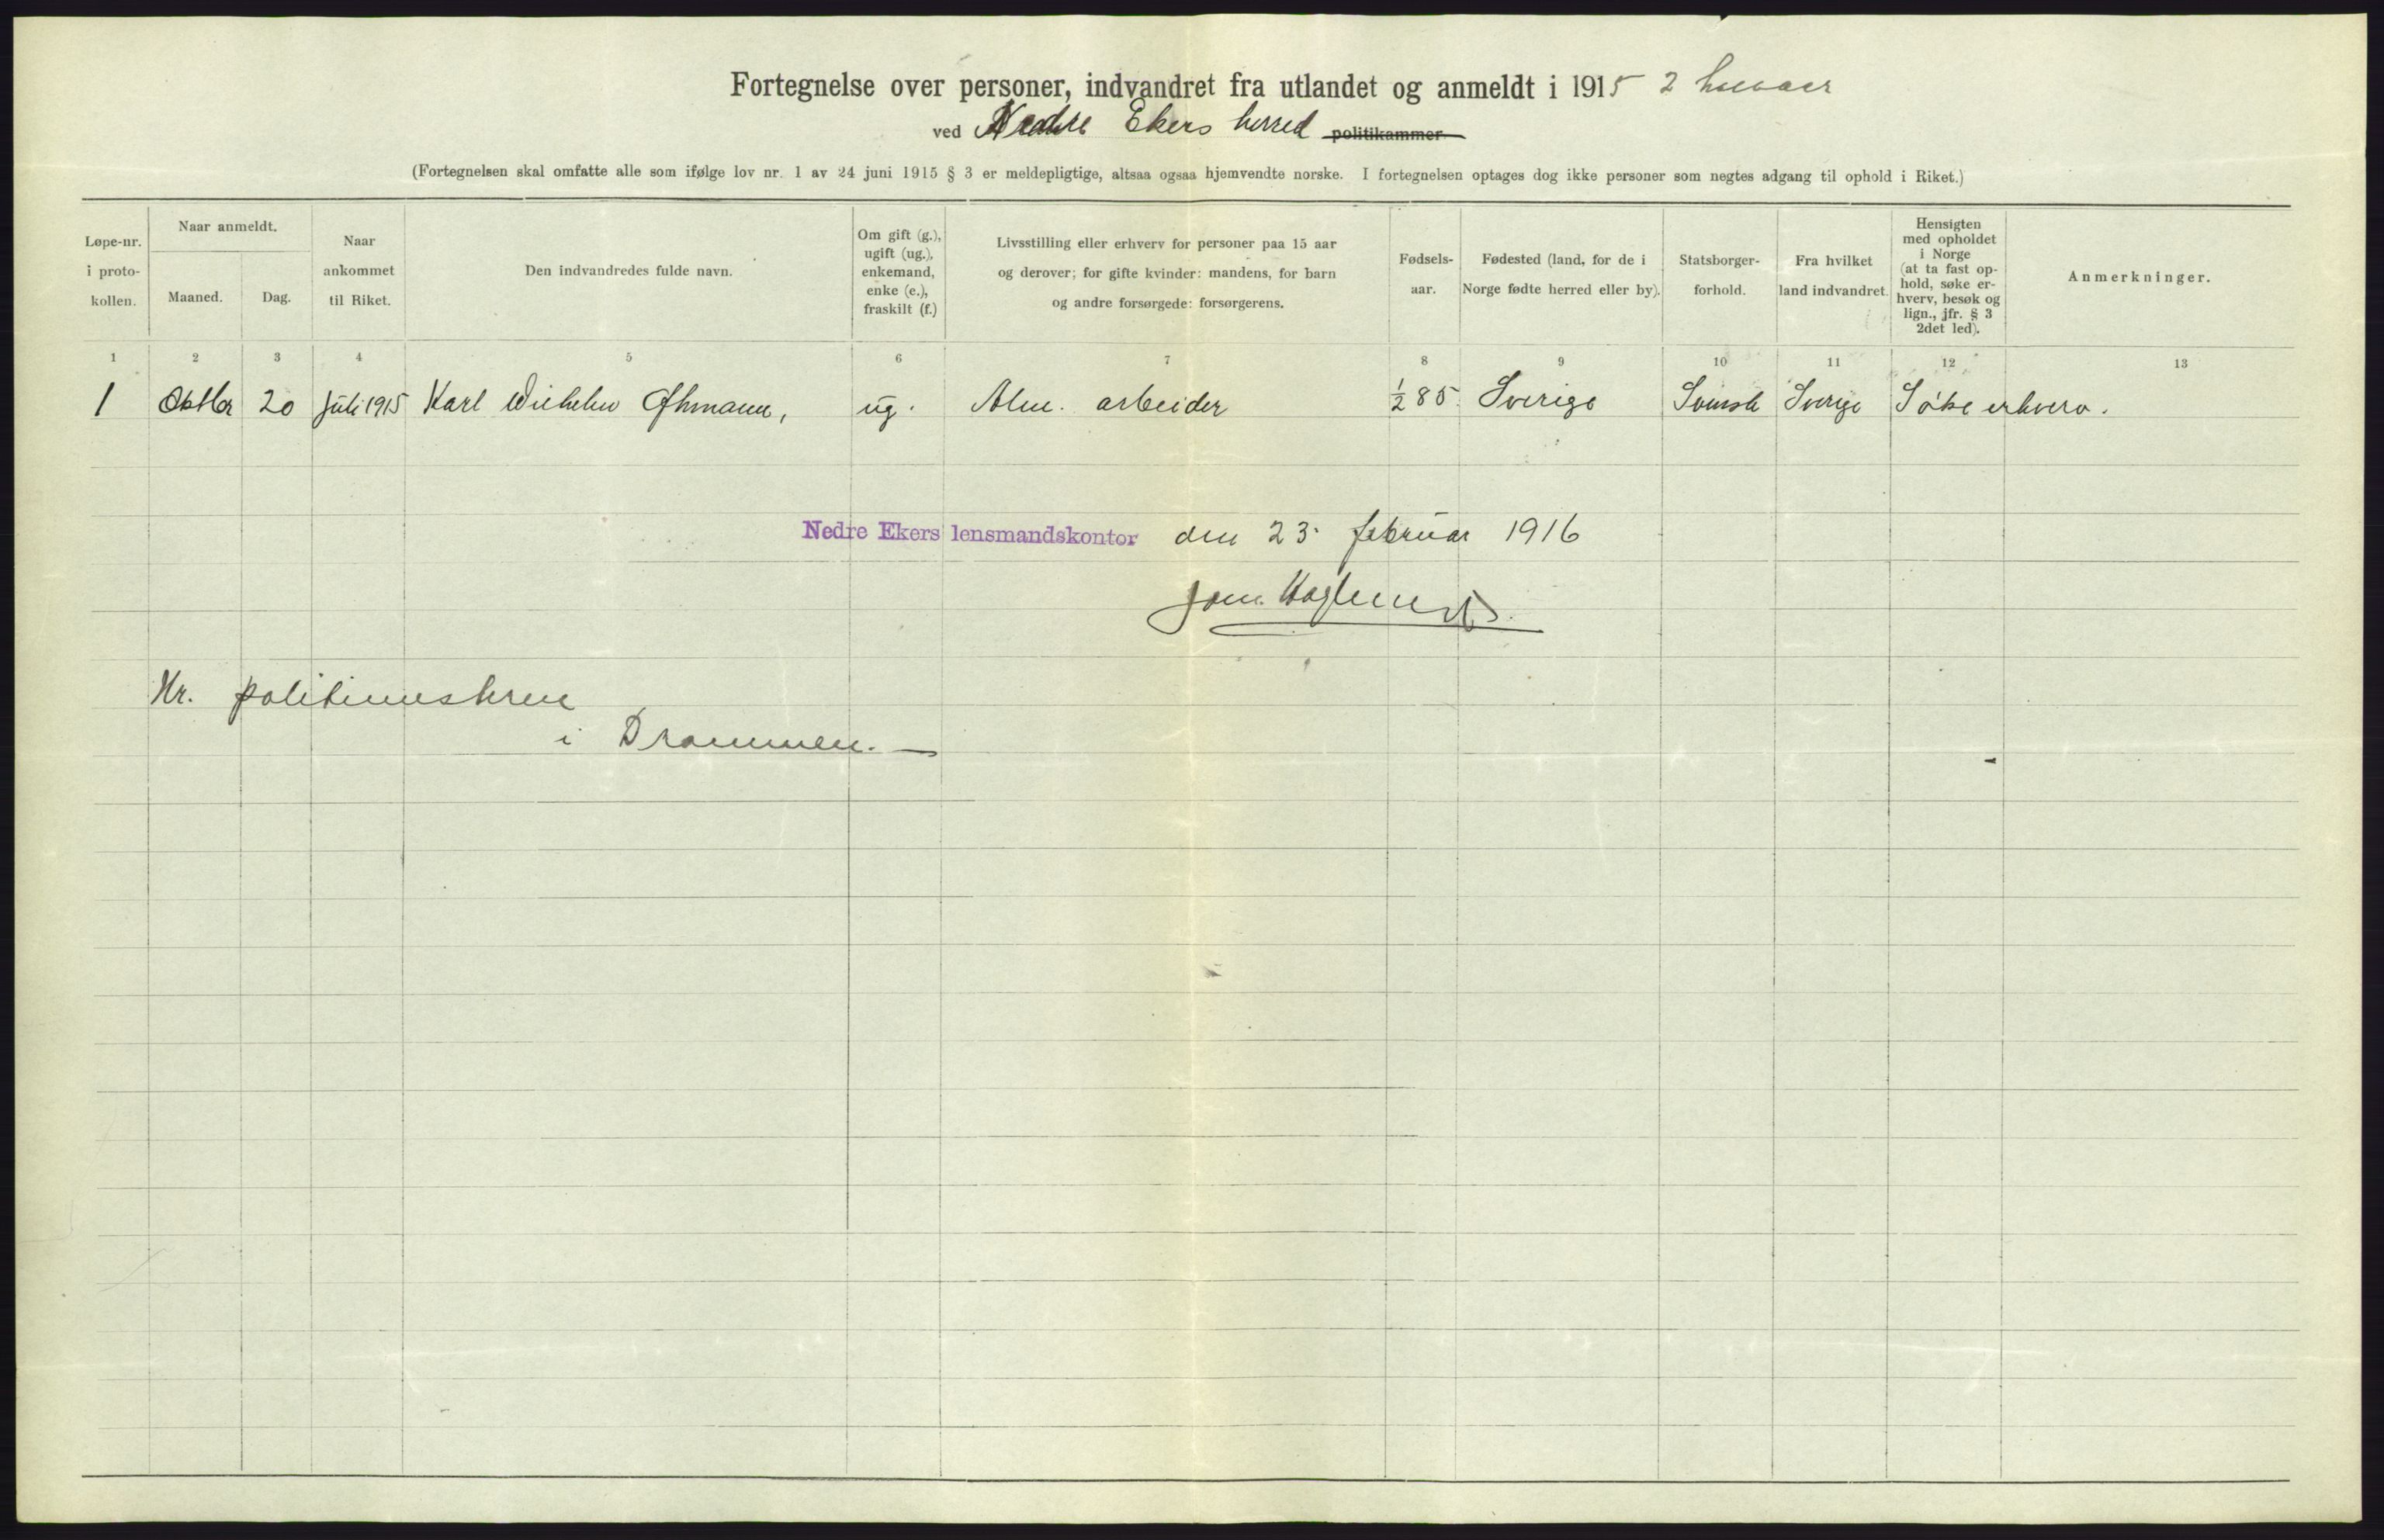 Fortegnelse over personer, indvandret fra utlandet og anmeldt i 1915 2 halvaar
ved Nedre Ekers herred politikammer
(Fortegnelsen skal omfatte alle som ifølge lov nr. 1 av 24 juni 1915 § 3 er meldepligtige, altsaa ogsaa hjemvendte norske. I fortegnelsen optages dog ikke personer som negtes adgang til ophold i Riket.)
Løpe-nr.
i proto-
kollen.
Naar anmeldt.
Maaned.
Dag.
Naar
ankommet
til Riket.
Den indvandredes fulde navn.
Om gift (g.),
ugift (ug.),
enkemand,
enke (e.),
fraskilt (f.)
Livsstilling eller erhverv for personer paa 15 aar
og derover; for gifte kvinder: mandens, for barn
og andre forsørgede: forsørgerens.
Fødsels-
aar.
Fødested (land, for de i
Norge fødte herred eller by).
Statsborger-
forhold.
Fra hvilket
land indvandret.
Hensigten
med opholdet
i Norge
(at ta fast op-
hold, søke er-
hverv, besøk og
lign., jfr. § 3
2det led).
Anmerkninger.
1 2 3 4 5 6 7 8 9 10 11 12 13
1 Oktbr 20 juli 1915 Karl Wilhelm Øhmann, ug. Alm. arbeider 1/2 85. Sverige Svensk Sverige Søke erhverv.
Nedre Ekers lensmandskontor den 23. februar 1916
Hr. politimesteren
i Drammen. —